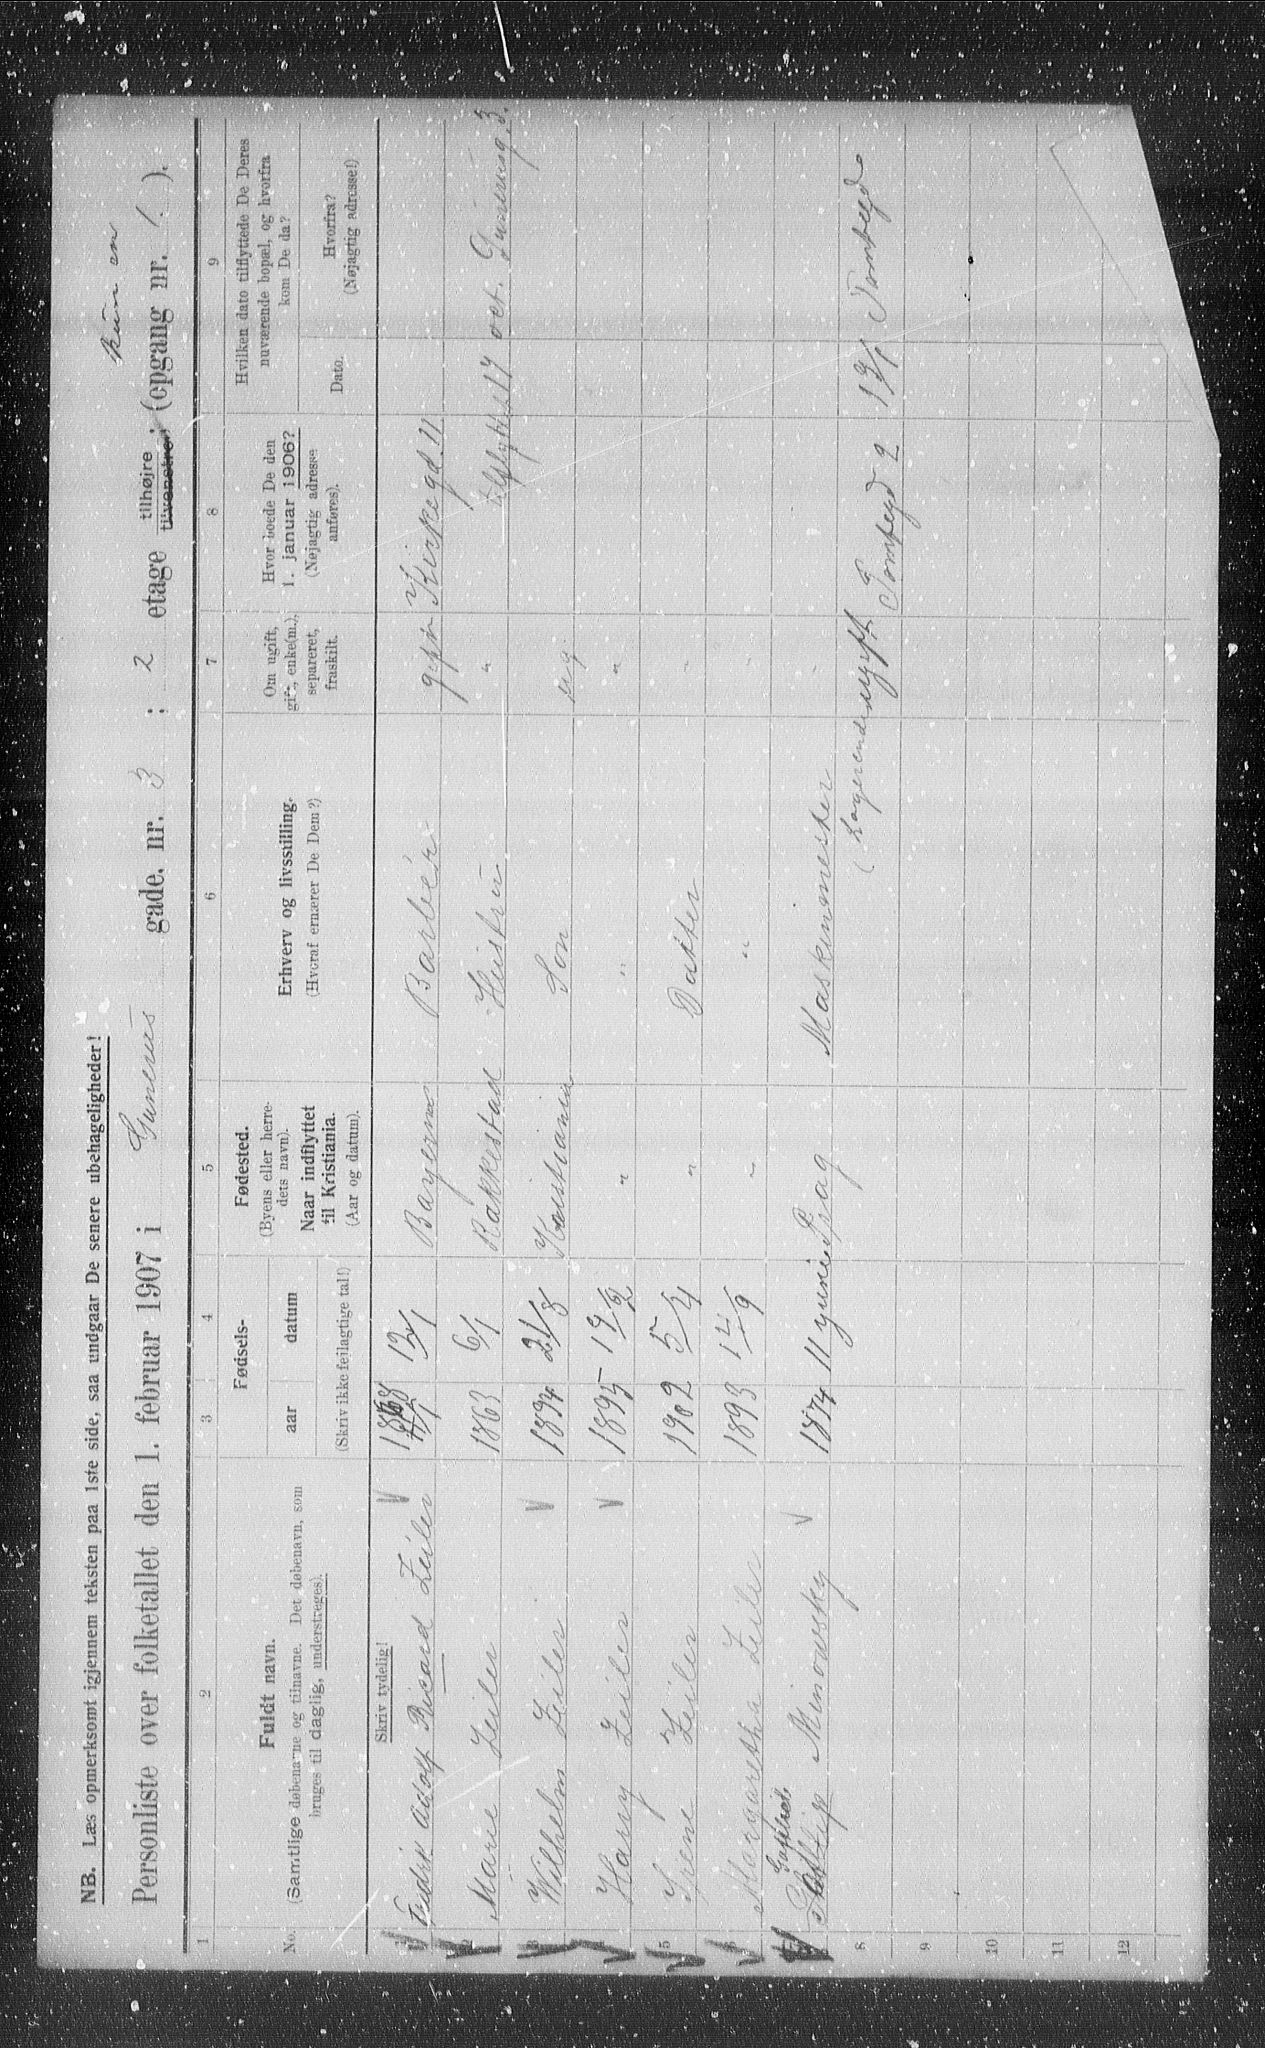 NB. Læs opmerksomt igjennem teksten paa 1ste side, saa undgaar De senere ubehageligheder!
kun en
Personliste over folketallet den 1. februar 1907 i Gunerus gade, nr. 3 ; 2 etage tilhøjre tilvenstre, (opgang nr. 1. ).
1 2 3 4 5 6 7 8 9
No.
Fuldt navn.
(Samtlige døbenavne og tilnavne. Det døbenavn, som
bruges til daglig, understreges).
Fødsels-
aar datum
(Skriv ikke feilagtige tal!)
Fødested.
(Byens eller herre-
dets navn).
Naar indflyttet
til Kristiania.
(Aar og datum).
Erhverv og livsstilling.
(Hvoraf ernærer De Dem?)
Om ugift,
gift, enke(m.),
separeret,
fraskilt.
Hvor boede De den
1. januar 1906?
(Nøjagtig adresse
anføres).
Hvilken dato tilflyttede De Deres
nuværende bopæl, og hvorfra
kom De da?
Dato.
Hvorfra?
(Nøjagtig adresse!)
Skriv tydelig!
1 Adolf Ricard Zeiler 13/1 Bayern Barber gift Kirkegd. 11
2 Marie Zeiler 1863 6/1 Rakkestad Hustru " 17 oct. Gunerusg. 3.
3 Wilhelm Zeiler 1894 21/8 Kristiania Son ug
4 Harry Zeiler 1895 19/2 " " "
5 Irene Zeiler 1902 5/4 " Datter "
6 Margaretha Zeiler 1893 14/9 " " "
7 Minovsky 1874 11 yuni Prag Maskinmester "
8 (Logerende ugift Tomtegd 2 19/1 Tomtegd
9
10
11
12